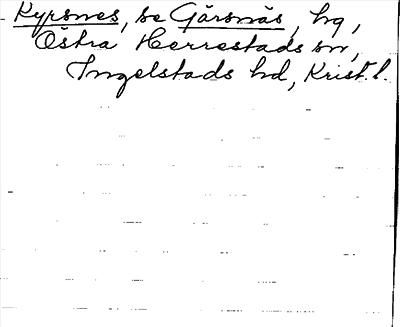 Kyrsnes, se Gärsnäs, hg,
Östra Herrestads sn,
Ingelstads hd, Krist. l.